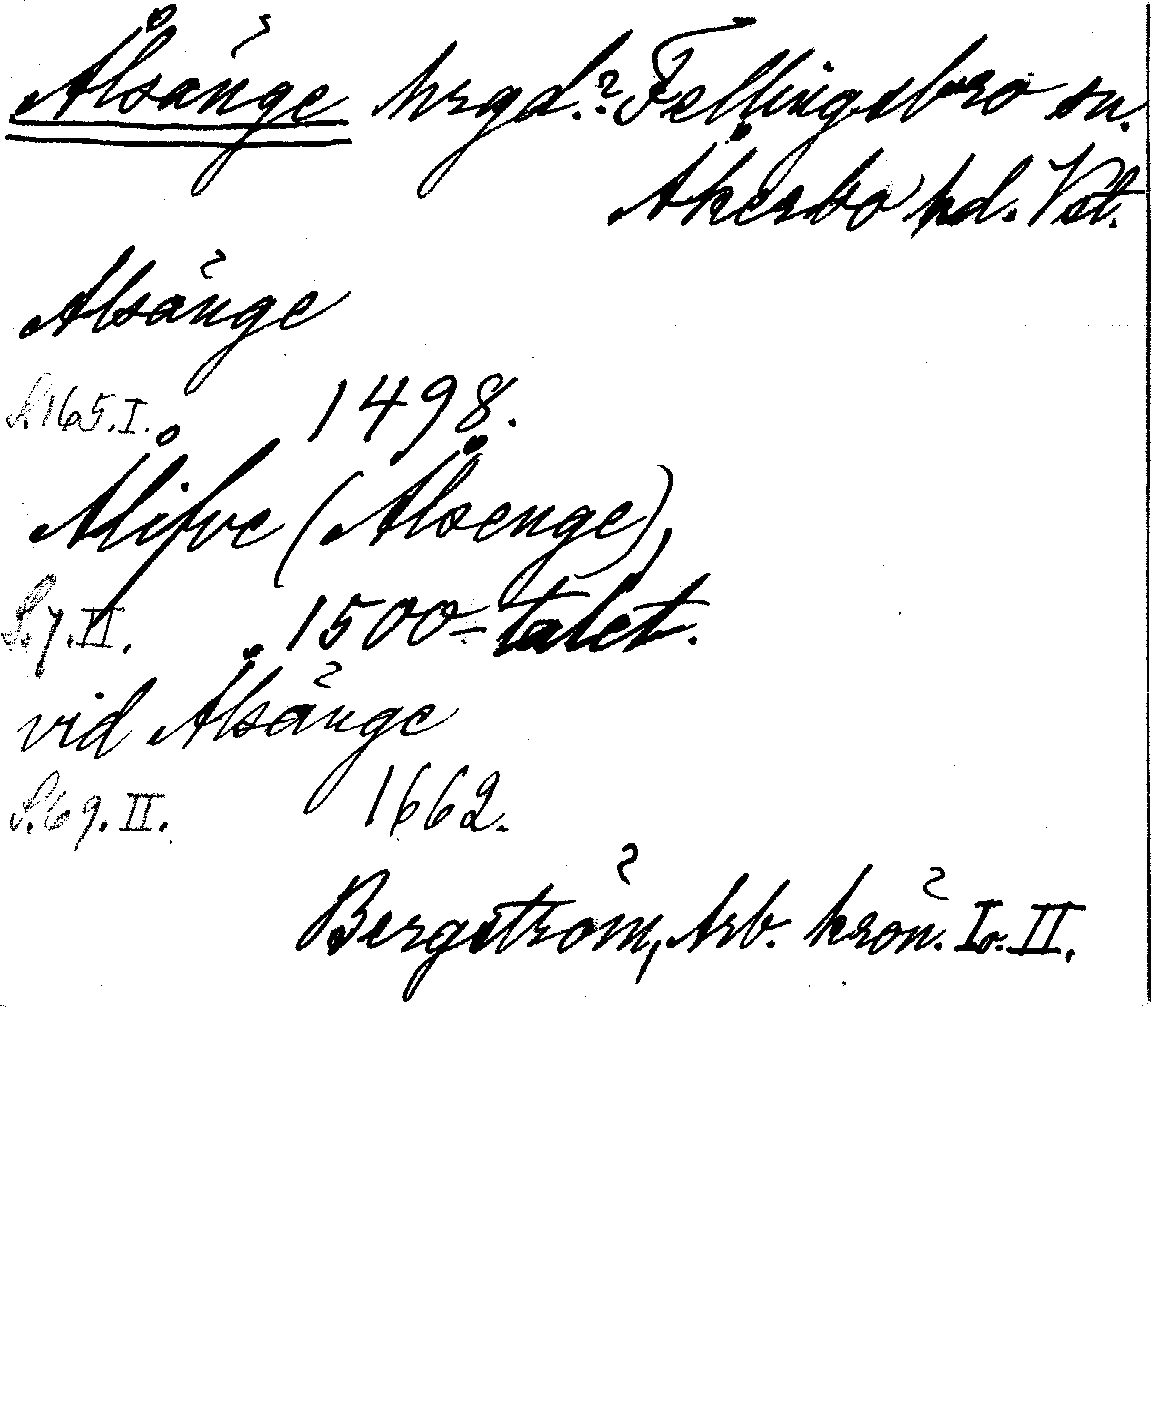 Ålsänge hrgd.? Fellingsbro sn.
Åkerbo hd. Vstl.
Alsänge
S. 165. I. 1498.
Ålifve (Ålsenge),
S. 7. II. 1500-talet.
vid Ålsänge
S. 69. II. 1662.
Bergström, Arb. krön. I o. II.